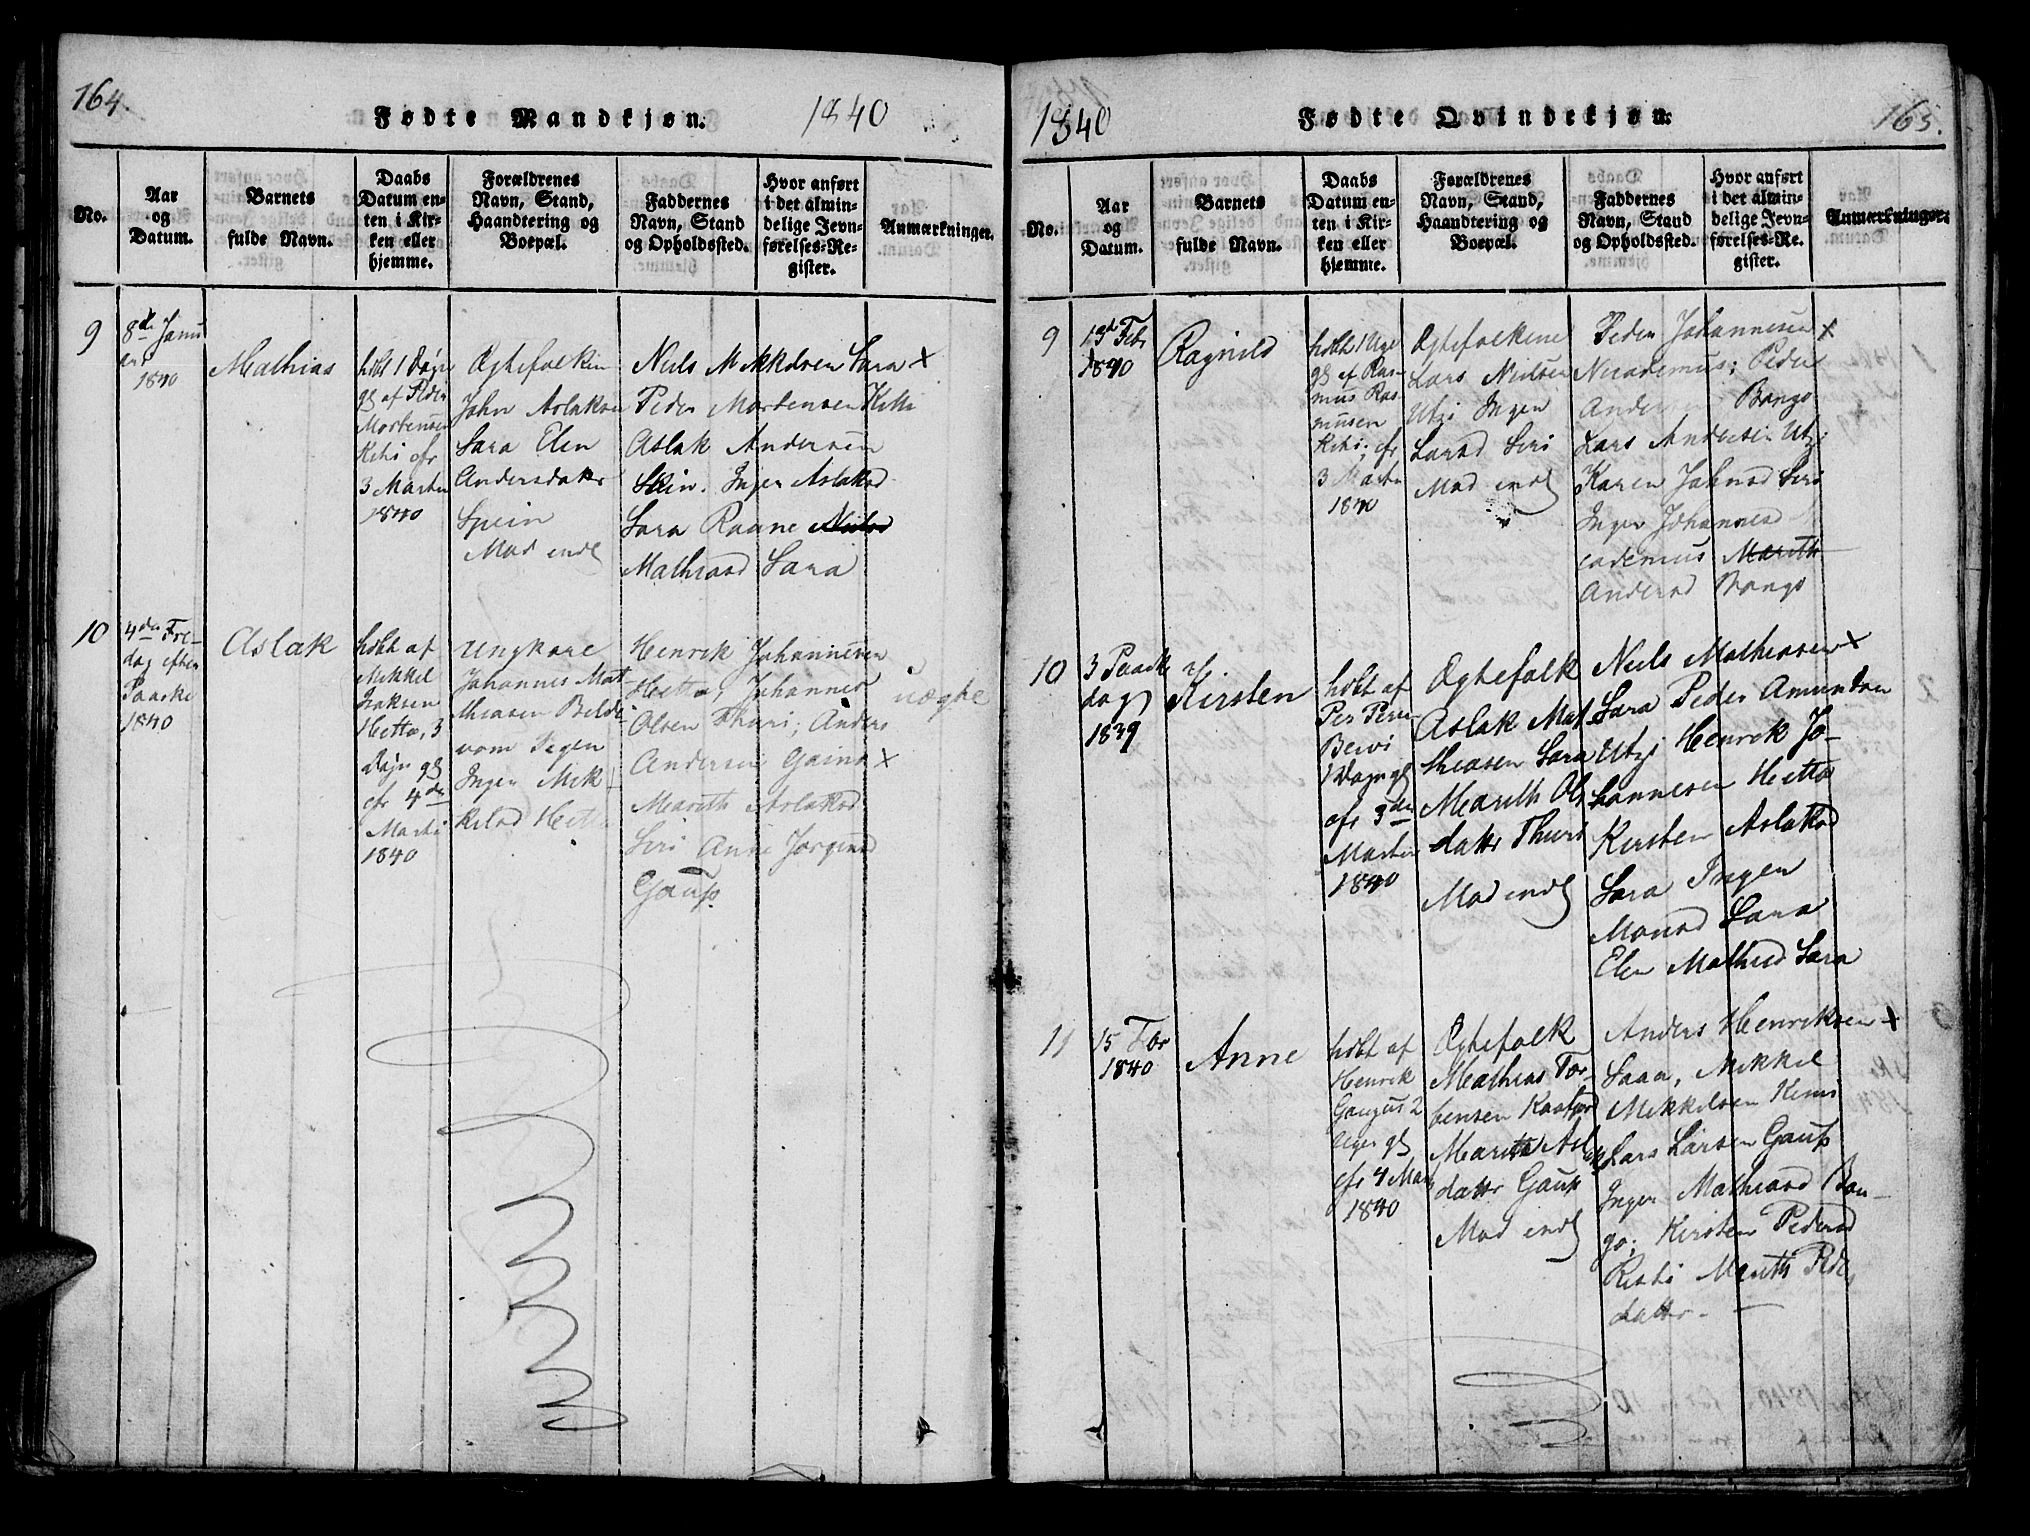 164.
Fødte Mandkjøn.
1840
No.
Aar
og
Datum.
Barnets
fulde Navn.
Daabs
Datum en-
ten i Kir-
ken eller
hjemme.
Forældrenes
Navn, Stand,
Haandtering og
Boepæl.
Faddernes
Navn, Stand
og Opholdssted.
Hvor anført
i det almin-
delige Jevn-
førelses-Re-
gister.
Anmærkninger.
9
8de Janu
1840
Mathias
hdbt 1 Dagn
gl af Peder
Mortensen
Kitti cfr
3 Marts
1840
Ægtefolkene
John Aslaksen
Sara Elen
Andersdatr
Spein
Mod endl
Niels Mikkelsen Sara +
Peder Mortensen Kitti
Aslak Andersen
Skin. Inger Aslaksd
Sara Raane
Mathisad Sara
10
4de Fre-
dag efter
Paaske
1840
Aslak
hdbt af
Mikkel
Isaksen
Hetta, 3
Dagn gl
cfr 4de
Marts
1840
Ungkarl
Johannes Mat
thiasen Beldo
vom Pigen
Inger Mik-
kelsd Hetta
Henrik Johannesen
Hetta, Johannes
Olsen Thuri; Anders
Andersen Gaino +
Mearith Aslaksd
Siri Anne Jørgensd
Gaup
uægte
1840
Fødte Qvindekjøn.
165.
No.
Aar
og
Datum.
Barnets
fulde Navn.
Daabs
Datum en-
ten i Kir-
ken eller
hjemme.
Forældrenes
Navn, Stand,
Haandtering og
Boepæl.
Faddernes
Navn, Stand
og Opholdssted.
Hvor anført
i det almin-
delige Jevn-
førelses-Re-
gister.
Anmærkninger.
9
13d Febr
1840
Ragnild
hdbt 1 Uge
gl af Ras-
mus Ras
musen
Kitti; cfr
3 Marts
1840
Ægtefolkene
Lars Nielsen
Utzi Inger
Larsd Siri
Mod endl
Peder Johannesen +
Nicodemus; Peder
Andersen Bongo
Lars Andersen Utzi
Karen Johnsd Siri
Inger Johannesd Ni
codemus Marith
Andersd Bongo
10
3 Paaske
dag
1839
Kirsten
hdbt af
Per Persen
Bewi
1 Dagn gl
cfr 3de
Marts
1840
Ægtefolk
Aslak Mat
thiasen Sara
Mearith Ols
datr Thuri
Mod endl
Niels Mathiasen +
Sara Peder Amundsen
Utzi Henrik Jo-
hannesen Hetta
Kirsten Aslaksd
Sara Inger
Monsd Sara
Elen Mathisd Sara
11
15 Febr
1840
Anne
hdbt af
Henrik
Gaugus 2
Uger gl
cfr 4 Mart
1840
Ægtefolk
Mathias Tor-
bensen Kaafjord
Marith Asl
datr Gaup
Mod endl
Anders Henriksen +
Sara, Mikkel
Mikkelsen Kemi
Lars Larsen Gaup
Inger Mathiasd Bon-
go; Kirsten Pedersd
Kitti Marith Peders
datter -